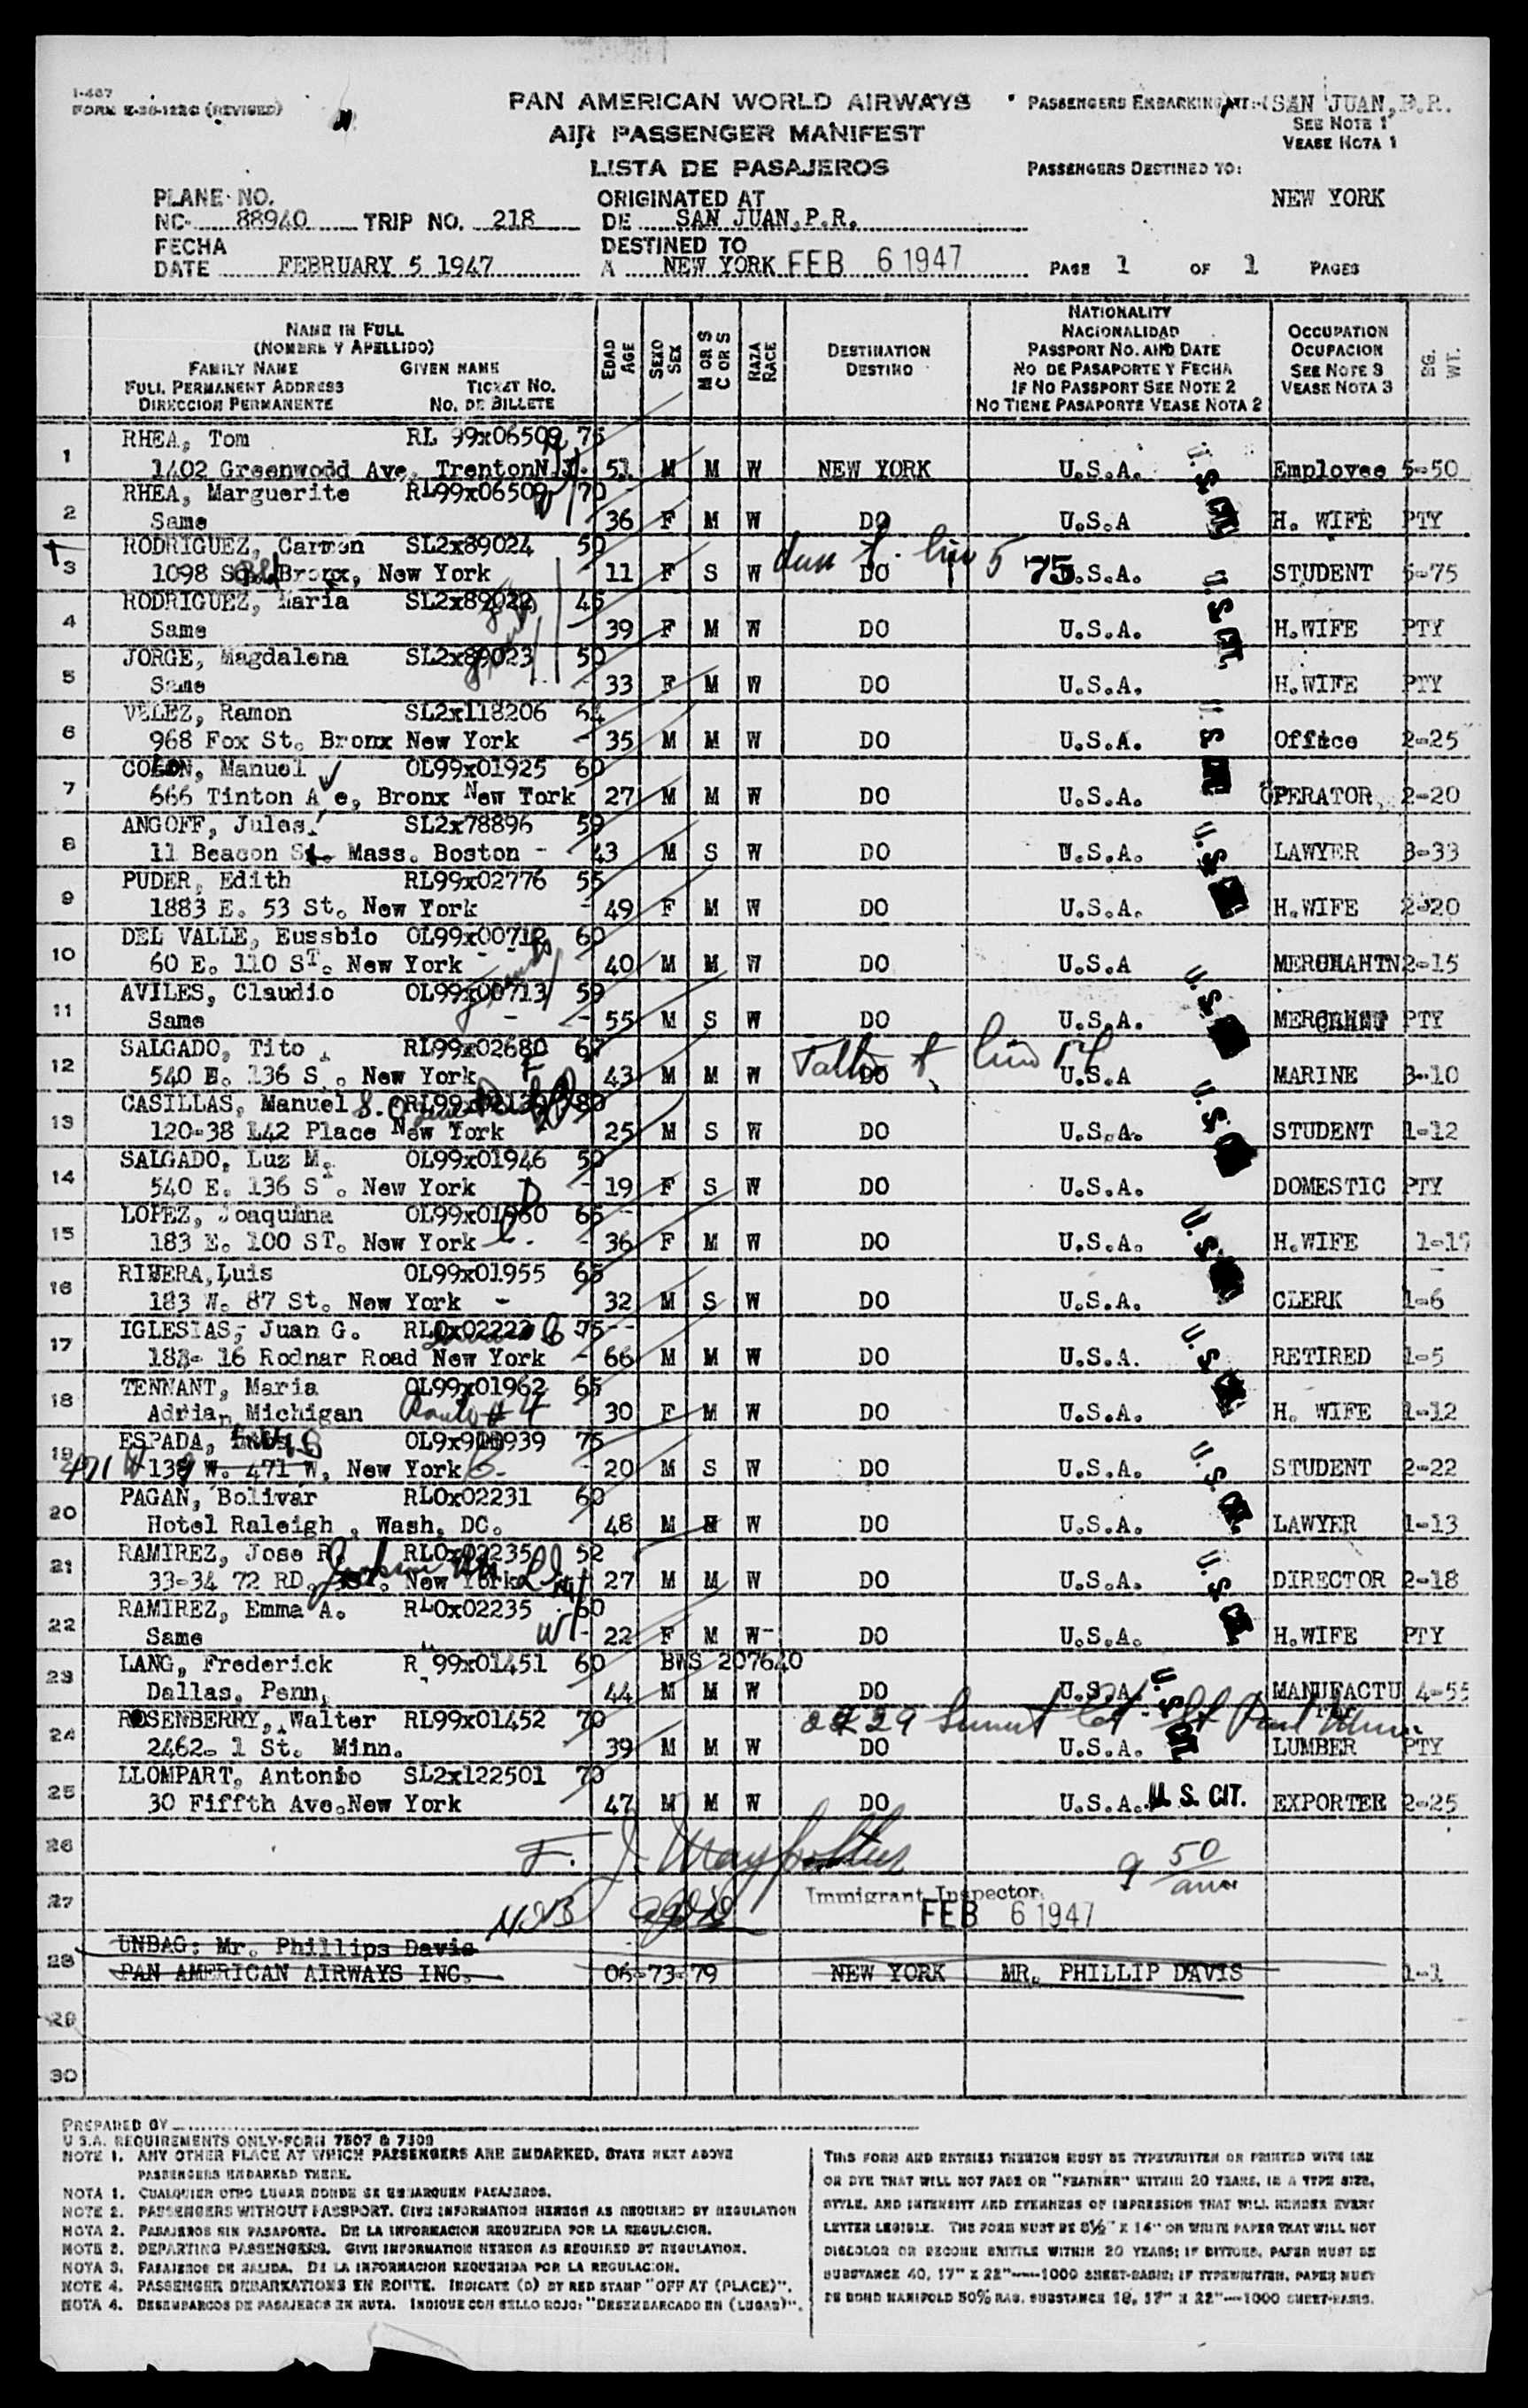 I-467
FORM E-36-122G (REVISED)
PAN AMERICAN WORLD AIRWAYS
AIR PASSENGER MANIFEST
LISTA DE PASAJEROS
PASSENGERS EMBARKING AT: SAN JUAN, P.R.
SEE NOTE 1
VEASE NOTA 1
PASSENGERS DESTINED TO:
NEW YORK
PLANE NO.
NC- 88940 TRIP NO. 218
ORIGINATED AT
DE SAN JUAN, P.R.
FECHA
DATE FEBRUARY 5 1947
DESTINED TO
A NEW YORK FEB 6 1947
PAGE 1 OF 1 PAGES
NAME IN FULL
(NOMBRE Y APELLIDO)
FAMILY NAME GIVEN NAME
FULL PERMANENT ADDRESS TICKET NO.
DIRECCION PERMANENTE NO. DE BILLETE
EDAD AGE
SEXO SEX
M OR S C OR S
RAZA RACE
DESTINATION
DESTINO
NATIONALITY
NACIONALIDAD
PASSPORT NO. AND DATE
NO DE PASAPORTE Y FECHA
IF NO PASSPORT SEE NOTE 2
NO TIENE PASAPORTE VEASE NOTA 2
OCCUPATION
OCUPACION
SEE NOTE 3
VEASE NOTA 3
BG. WT.
1 RHEA, Tom RL 99x06509 75
1402 Greenwodd Ave, Trenton N.J. 51 M M W NEW YORK U.S.A. Employee 5-50
2 RHEA, Marguerite RL99x06509 70
Same 36 F M W DO U.S.A H. WIFE PTY
3 RODRIGUEZ, Carmen SL2x89024 50
1098 Bronx, New York 11 F S W DO 75 .S.A. STUDENT 5-75
4 RODRIGUEZ, Maria SL2x89022 45
Same 39 F M W DO U.S.A. H.WIFE PTY
5 JORGE, Magdalena SL2x89023 50
Same 33 F M W DO U.S.A. H.WIFE PTY
6 VELEZ, Ramon SL2x118206 64
968 Fox St. Bronx New York 35 M M W DO U.S.A. Office 2-25
7 COLON, Manuel OL99x01925 60
666 Tinton A e, Bronx New York 27 M M W DO U.S.A. OPERATOR 2-20
8 ANGOFF, Jules SL2x78896 59
11 Beacon St. Mass. Boston - 43 M S W DO U.S.A. LAWYER 3-33
9 PUDER, Edith RL99x02776 55
1883 E. 53 St. New York 49 F M W DO U.S.A. H.WIFE 2-20
10 DEL VALLE, Eussbio OL99x00712 60
60 E. 110 ST. New York 40 M M W DO U.S.A 2-15
11 AVILES, Claudio OL99x00713 59
Same 55 M S W DO U.S.A. PTY
12 SALGADO, Tito RL99x02680 67
540 E. 136 S . New York 43 M M W DO U.S.A MARINE 3-10
13 CASILLAS, Manuel 80
120-38 142 Place New York 25 M S W DO U.S.A. STUDENT 1-12
14 SALGADO, Luz M. OL99x01946 50
540 E. 136 ST. New York 19 F S W DO U.S.A. DOMESTIC PTY
15 LOPEZ, Joaquina 65
183 E. 100 ST. New York 36 F M W DO U.S.A. H.WIFE 1-17
16 RIVERA, Luis OL99x01955 65
183 W. 87 St. New York - 32 M S W DO U.S.A. CLERK 1-6
17 IGLESIAS, Juan G. RL0x02222 75
188- 16 Rodnar Road New York 66 M M W DO U.S.A. RETIRED 1-5
18 TENNANT, Maria OL99x01962 65
Adrian Michigan Route #4 30 F M W DO U.S.A. H. WIFE 1-12
19 ESPADA, 75
471 W 139 W. 471 W, New York 20 M S W DO U.S.A. STUDENT 2-22
20 PAGAN, Bolivar RL0x02231 60
Hotel Raleigh , Wash. DC. 48 M W DO U.S.A. LAWYER 1-13
21 RAMIREZ, Jose R. RL0x02235 52
33-34 72 RD, New York 27 M M W DO U.S.A. DIRECTOR 2-18
22 RAMIREZ, Emma A. RL0x02235 60
Same 22 F M W DO U.S.A. H.WIFE PTY
23 LANG, Frederick R 99x01451 60 BWS 207640
Dallas, Penn, 44 M M W DO U.S.A. MANUFACTU 4-55
24 ROSENBERRY, Walter RL99x01452 70
2462- 1 St. Minn. 39 M M W DO U.S.A. LUMBER PTY
25 LLOMPART, Antonio SL2x122501 70
30 Fiffth Ave.New York 47 M M W DO U.S.A. U.S. CIT. EXPORTER 2-25
26
9 50
am
27
Immigrant Inspector
FEB 6 1947
28 UNBAG: Mr. Phillips Davis
PAN AMERICAN AIRWAYS INC. 06-73-79 NEW YORK MR. PHILLIP DAVIS 1-1
29
30
PREPARED BY
U S.A. REQUIREMENTS ONLY-FORM 7507 & 7509
NOTE 1. ANY OTHER PLACE AT WHICH PASSENGERS ARE EMBARKED, STATE NEXT ABOVE
PASSENGERS EMBARKED THERE.
NOTA 1. CUALQUIER OTRO LUGAR DONDE SE EMBARQUEN PASAJEROS.
NOTE 2. PASSENGERS WITHOUT PASSPORT. GIVE INFORMATION HEREON AS REQUIRED BY REGULATION
NOTA 2. PASAJEROS SIN PASAPORTE. DE LA INFORMACION REQUERIDA POR LA REGULACION.
NOTE 3. DEPARTING PASSENGERS. GIVE INFORMATION HEREON AS REQUIRED BY REGULATION.
NOTA 3. PASAJEROS DE SALIDA. DE LA INFORMACION REQUERIDA POR LA REGULACION.
NOTE 4. PASSENGER DEBARKATIONS EN ROUTE. INDICATE (D) BY RED STAMP "OFF AT (PLACE)".
NOTA 4. DESEMBARCOS DE PASAJEROS EN RUTA. INDIQUE CON SELLO ROJO: "DESEMBARCADO EN (LUGAR)".
THIS FORM AND ENTRIES THEREON MUST BE TYPEWRITTEN OR PRINTED WITH INK
OR DYE THAT WILL NOT FADE OR "FEATHER" WITHIN 20 YEARS, IN A TYPE SIZE,
STYLE, AND INTENSITY AND EVENNESS OF IMPRESSION THAT WILL RENDER EVERY
LETTER LEGIBLE. THE FORM MUST BE 8½" X 14" ON WHITE PAPER THAT WILL NOT
DISCOLOR OR BECOME BRITTLE WITHIN 20 YEARS; IF DITTOED, PAPER MUST BE
SUBSTANCE 40, 17" X 22"—1000 SHEET-BASIS; IF TYPEWRITTEN, PAPER MUST
BE BOND MANIFOLD 50% RAG, SUBSTANCE 16, 17" X 22"—1000 SHEET-BASIS.